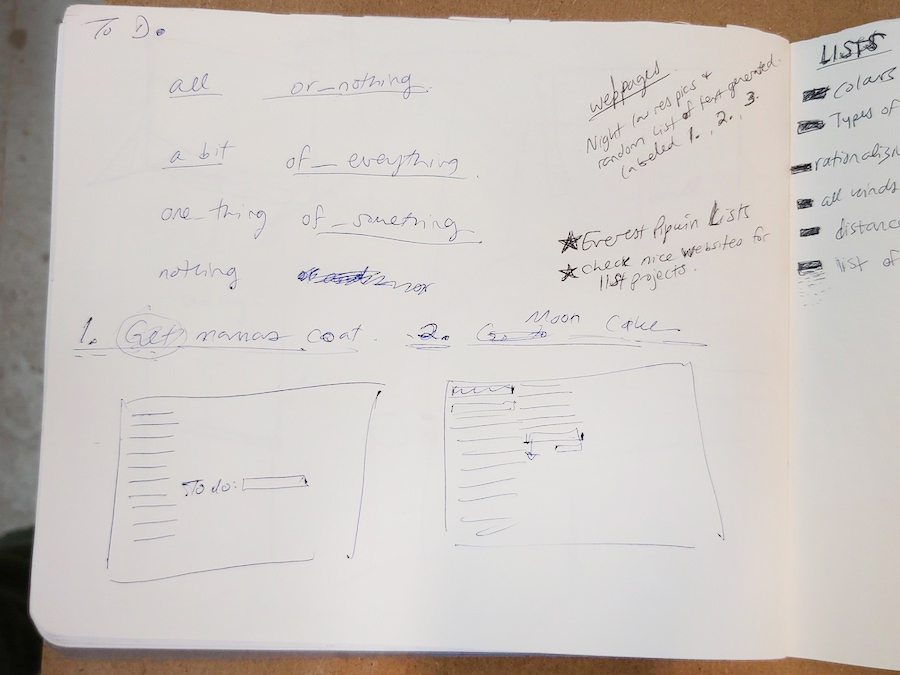 To Do.
all or_nothing.
a bit of_everything
one_thing of_something
nothing
webpages
Night low res pics +
random list of text generated.
labeled 1., 2., 3.
★ Everest Pipkin Lists
★ check nice websites for
list projects.
1. Get mamas coat. 2. Moon Cake
To do:
LISTS
Colours
Types of
rationalism
all kinds
distance
list of